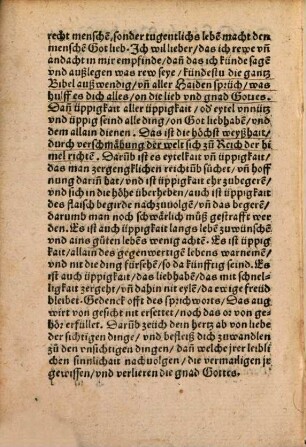 recht menschẽ, sonder tugentlichs lebẽ macht den
menschẽ Got lieb. Ich wil lieber / das ich rewe vñ
andacht in mir empfinde / dañ das ich künde sagẽ
vnd außlegen was rew seye / kündestu die gantz
Bibel außwendig / vñ aller Haiden sprüch / was
hulff es dich alles / on die lieb vnd gnad Gottes.
Dañ üppigkait aller üppigkait / od eytel vnnütz
vnd üppig seind alle ding / on Got liebhabẽ / vnd
dem allain dienen. Das ist die höchst weyßhait /
durch verschmähung der welt sich zů Reich der hi
mel richtẽ. Darüb ist es eytelkait vñ üppigkait /
das man zergengklichen reichtüb sůchet / vñ hoff
nung dariñ hat / vnd ist üppigkait ehr zubegerẽ /
vnd sich in die höhe überheben / auch ist üppigkait
des flaisch begirde nachzuuolgẽ / vñ das begerẽ /
darumb man noch schwärlich můß gestrafft wer
den. Es ist auch üppigkait langs lebẽ zuwünschẽ
vnd ains gůten lebẽs wenig achtẽ. Es ist üppig
kait / allain des gegenwertigẽ lebens warnemẽ /
vnd nit die ding fürsehẽ / so da künfftig seind. Es
ist auch üppigkait / das liebhabẽ / das mit schnel-
ligkait zergeht / vñ dahin nit eylẽ / da ewige freud
bleibet. Gedenck offt des sprichworts / Das aug
wirt von gesicht nit ersettet / noch das or von ge-
hör erfüllet. Darüb zeüch dein hertz ab von liebe
der sichtigen dinge / vnd befleiß dich zůwandlen
zů den vnsichtigen dingen / dañ welche jrer leibli
chen sinnlichait nachuolgen / die vermailigen jr
gewissen / vnd verlieren die gnad Gottes.